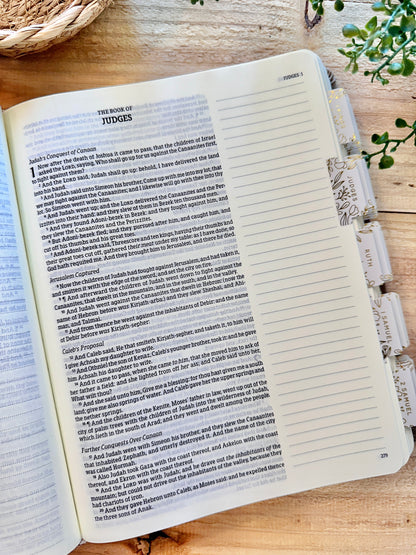 JUDGES 1
THE BOOK OF
JUDGES
Judah's Conquest of Canaan
1 Now after the death of Joshua it came to pass, that the children of Israel
asked the LORD, saying, Who shall go up for us against the Canaanites first,
to fight against them?
2 And the LORD said, Judah shall go up: behold, I have delivered the land
into his hand.
3 And Judah said unto Simeon his brother, Come up with me into my lot, that
we may fight against the Canaanites; and I likewise will go with thee into thy
lot. So Simeon went with him.
4 And Judah went up; and the LORD delivered the Canaanites and the Periz-
zites into their hand: and they slew of them in Bezek ten thousand men.
5 And they found Adoni-bezek in Bezek: and they fought against him, and
they slew the Canaanites and the Perizzites.
6 But Adoni-bezek fled; and they pursued after him, and caught him, and
cut off his thumbs and his great toes.
7 And Adoni-bezek said, Threescore and ten kings, having their thumbs and
their great toes cut off, gathered their meat under my table: as I have done, so
God hath requited me. And they brought him to Jerusalem, and there he died.
Jerusalem Captured
8 Now the children of Judah had fought against Jerusalem, and had taken it,
and smitten it with the edge of the sword, and set the city on fire.
9 ¶ And afterward the children of Judah went down to fight against the
Canaanites, that dwelt in the mountain, and in the south, and in the valley.
10 And Judah went against the Canaanites that dwelt in Hebron: (now the
name of Hebron before was Kirjath-arba:) and they slew Sheshai, and Ahi-
man, and Talmai.
11 And from thence he went against the inhabitants of Debir: and the name
of Debir before was Kirjath-sepher:
Caleb's Proposal
12 And Caleb said, He that smiteth Kirjath-sepher, and taketh it, to him will
I give Achsah my daughter to wife.
13 And Othniel the son of Kenaz, Caleb's younger brother, took it: and he gave
him Achsah his daughter to wife.
14 And it came to pass, when she came to him, that she moved him to ask of
her father a field: and she lighted from off her ass; and Caleb said unto her,
What wilt thou?
15 And she said unto him, Give me a blessing: for thou hast given me a south
land; give me also springs of water. And Caleb gave her the upper springs and
the nether springs.
16 ¶ And the children of the Kenite, Moses' father in law, went up out of the
city of palm trees with the children of Judah into the wilderness of Judah,
which lieth in the south of Arad; and they went and dwelt among the people.
Further Conquests Over Canaan
17 And Judah went with Simeon his brother, and they slew the Canaanites
that inhabited Zephath, and utterly destroyed it. And the name of the city
was called Hormah.
18 Also Judah took Gaza with the coast thereof, and Askelon with the coast
thereof, and Ekron with the coast thereof.
19 And the LORD was with Judah; and he drave out the inhabitants of the
mountain; but could not drive out the inhabitants of the valley, because they
had chariots of iron.
20 And they gave Hebron unto Caleb, as Moses said: and he expelled thence
the three sons of Anak.
279
JUDGES
RUTH
1 SAMUEL
2 SAMUEL